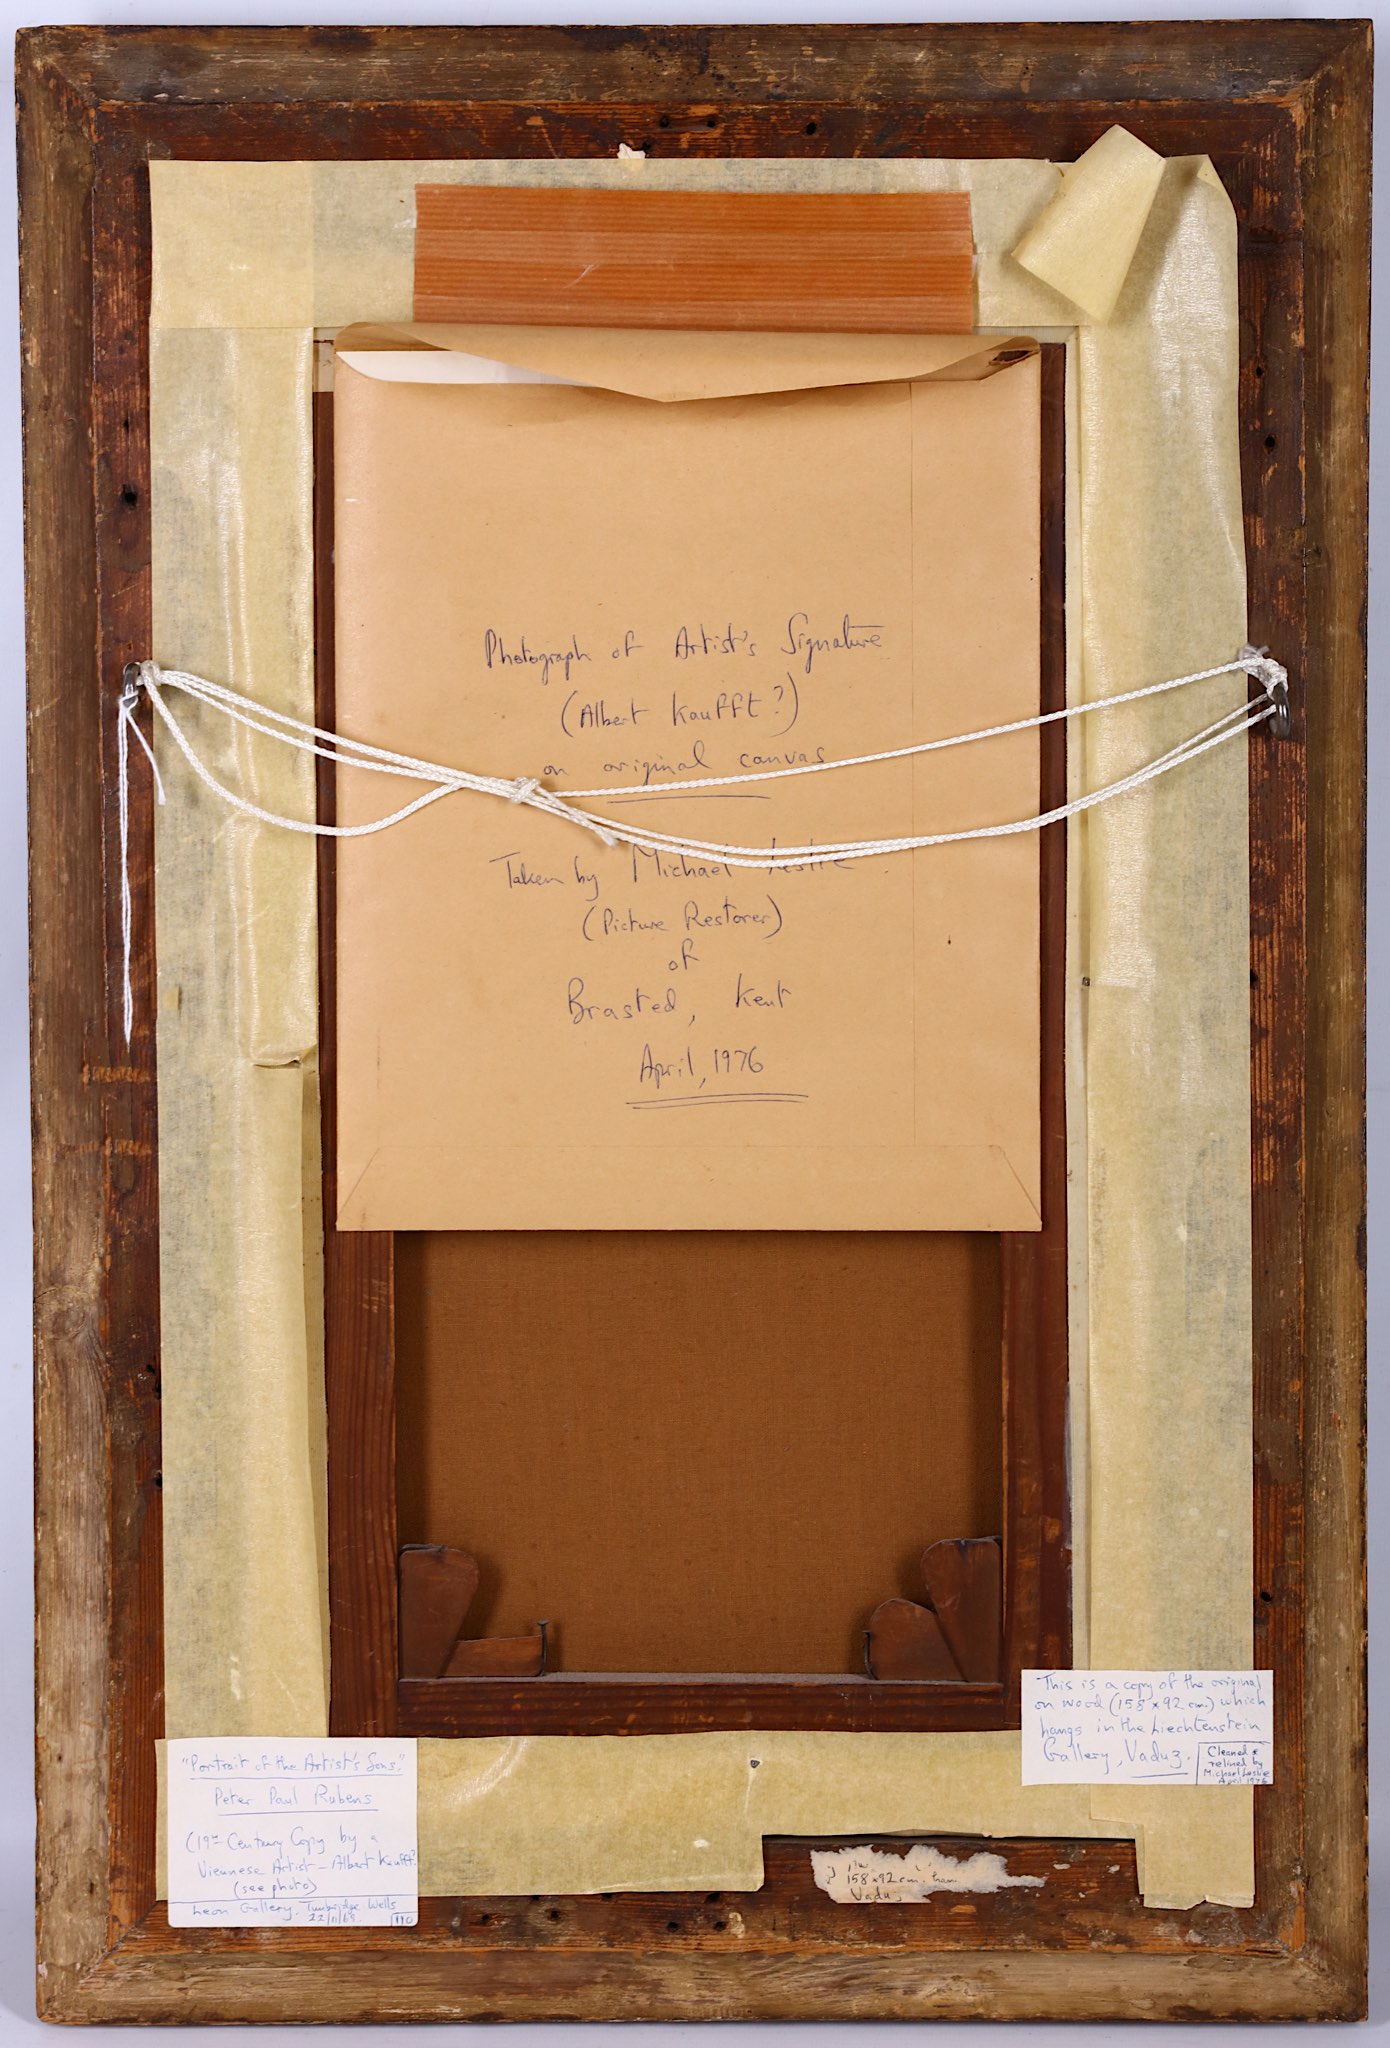 Photograph of Artist's Signature
(Albert Kaufft?)
on original canvas
Taken by Michael Leslie
(Picture Restorer)
of
Brasted, Kent
April, 1976
This is a copy of the original
on wood (158 x 92 cm.) which
hangs in the Liechtenstein
Gallery, Vaduz.
Cleaned &
relined by
Michael Leslie
April 1976
"Portrait of the Artist's Sons."
Peter Paul Rubens
(19th Century Copy by a
Viennese Artist - Albert Kaufft?
(see photo)
Leon Gallery, Tunbridge Wells
22/11/65.
110
158 x 92 cm.
Vaduz